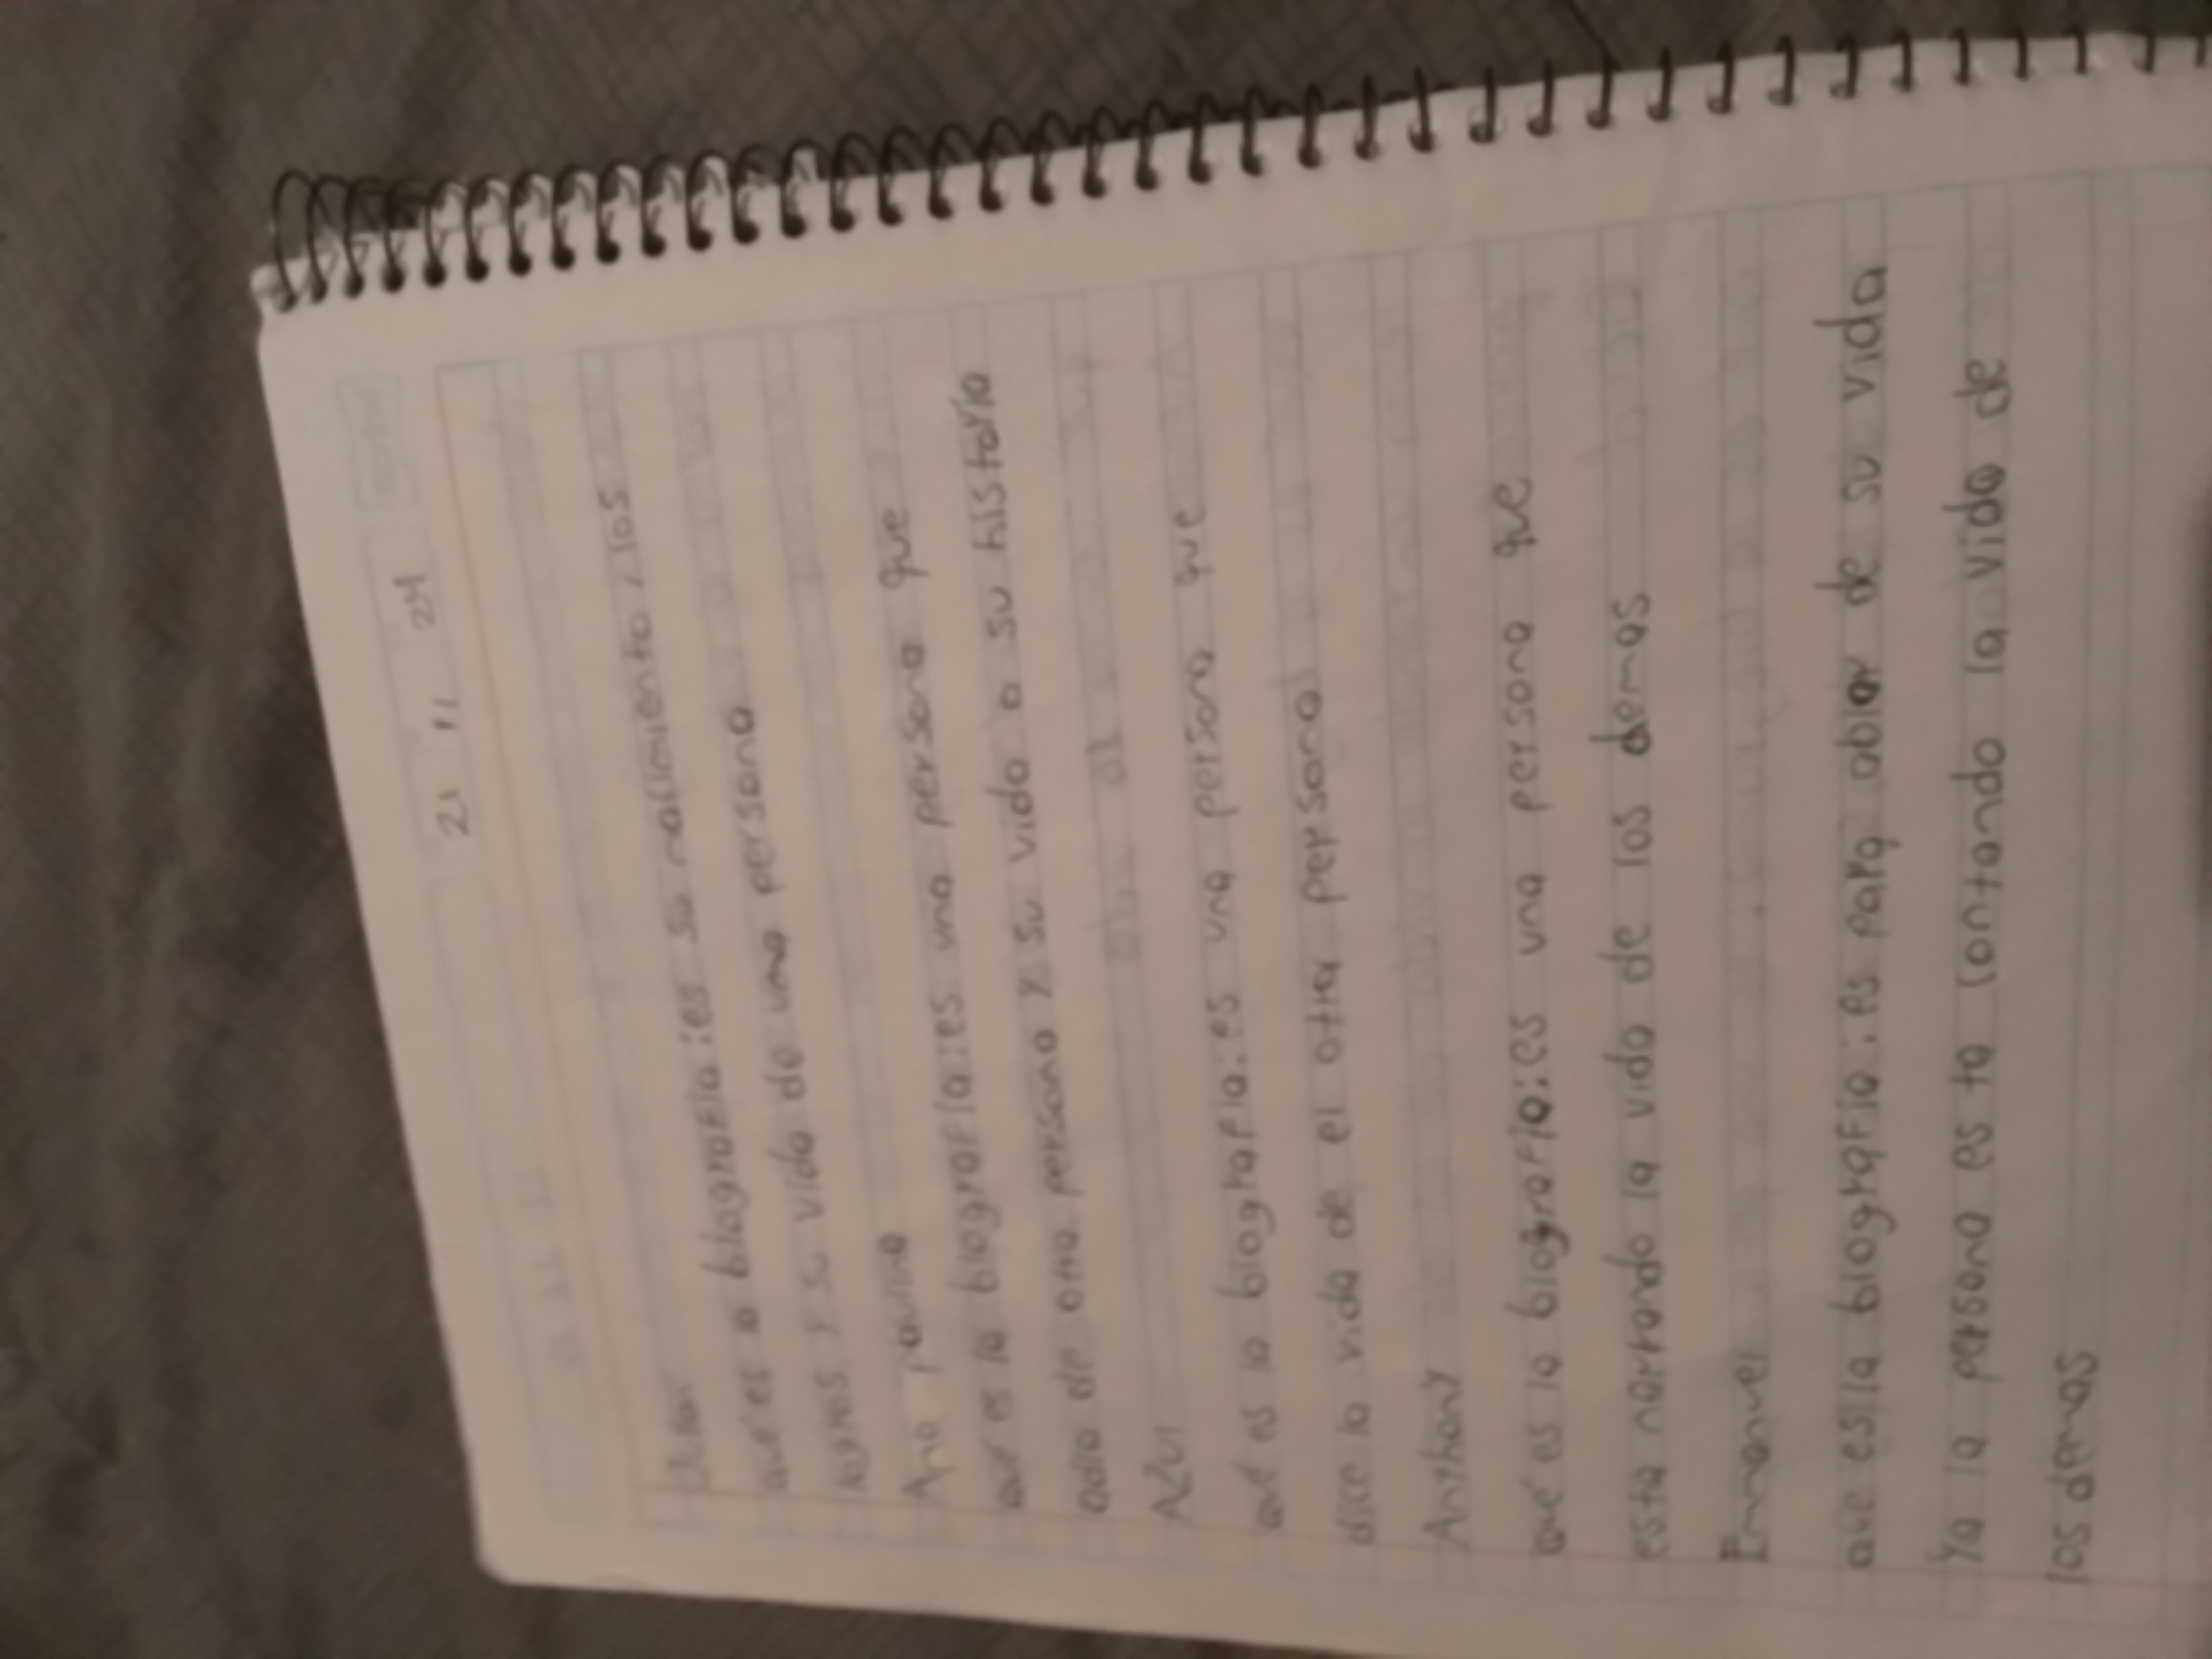 21 11 24
que es la biografia: es su nacimiento, los
logros y su vida de una persona
Ana paulina
que es la biografia: es una persona que
de otra persona y su vida o su historia
Azul
qué es la biografia: es una persona que
dice la vida de el otra persona
Anthony
qué es la biografia: es una persona que
esta narrando la vida de los demas
Emanuel
que es la biografia: es para ablar de su vida
Ya la persona es ta contando la vida de
los demas